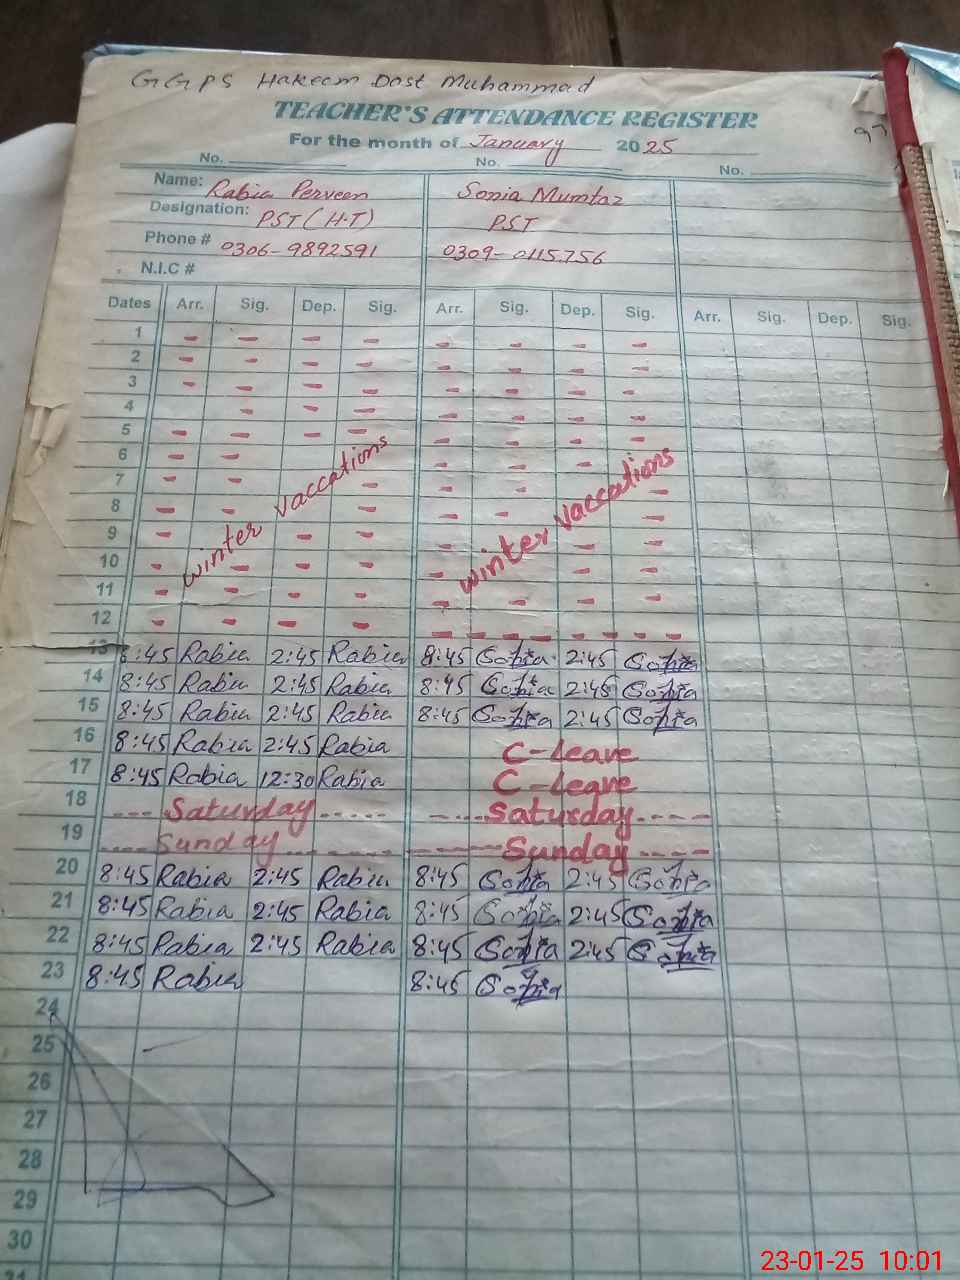 GGPS Hakeem Dost Muhammad
TEACHER'S ATTENDANCE REGISTER
97
For the month of January 2025
No. No. No.
Name: Rabia Perveen Sonia Mumtaz
Designation: PST (H.T) PST
Phone # 0306-9892591 0309-0115756
N.I.C #
Dates Arr. Sig. Dep. Sig. Arr. Sig. Dep. Sig. Arr. Sig. Dep. Sig.
1 - - - - - - - -
2 - - - - - - - -
3 - - - - - - - -
4 - - - - - - -
5 - - - - - - - -
6 - - - - - -
7 - - - - -
8 - - - - - -
9 - - - - -
10 - - - - - - -
11 - - - - - - -
12 - - - - - - - - - - -
winter vaccations winter vaccations
13 8:45 Rabia 2:45 Rabia 8:45 Sonia 2:45 Sonia
14 8:45 Rabia 2:45 Rabia 8:45 Sonia 2:45 Sonia
15 8:45 Rabia 2:45 Rabia 8:45 Sonia 2:45 Sonia
16 8:45 Rabia 2:45 Rabia C-Leave
17 8:45 Rabia 12:30 Rabia C-Leave
18 --- Saturday ----- ----Saturday----
19 ---- Sunday ------- -----Sunday----
20 8:45 Rabia 2:45 Rabia 8:45 Sonia 2:45 Sonia
21 8:45 Rabia 2:45 Rabia 8:45 Sonia 2:45 Sonia
22 8:45 Rabia 2:45 Rabia 8:45 Sonia 2:45 Sonia
23 8:45 Rabia 8:45 Sonia
24
25
26
27
28
29
30
31
23-01-25 10:01